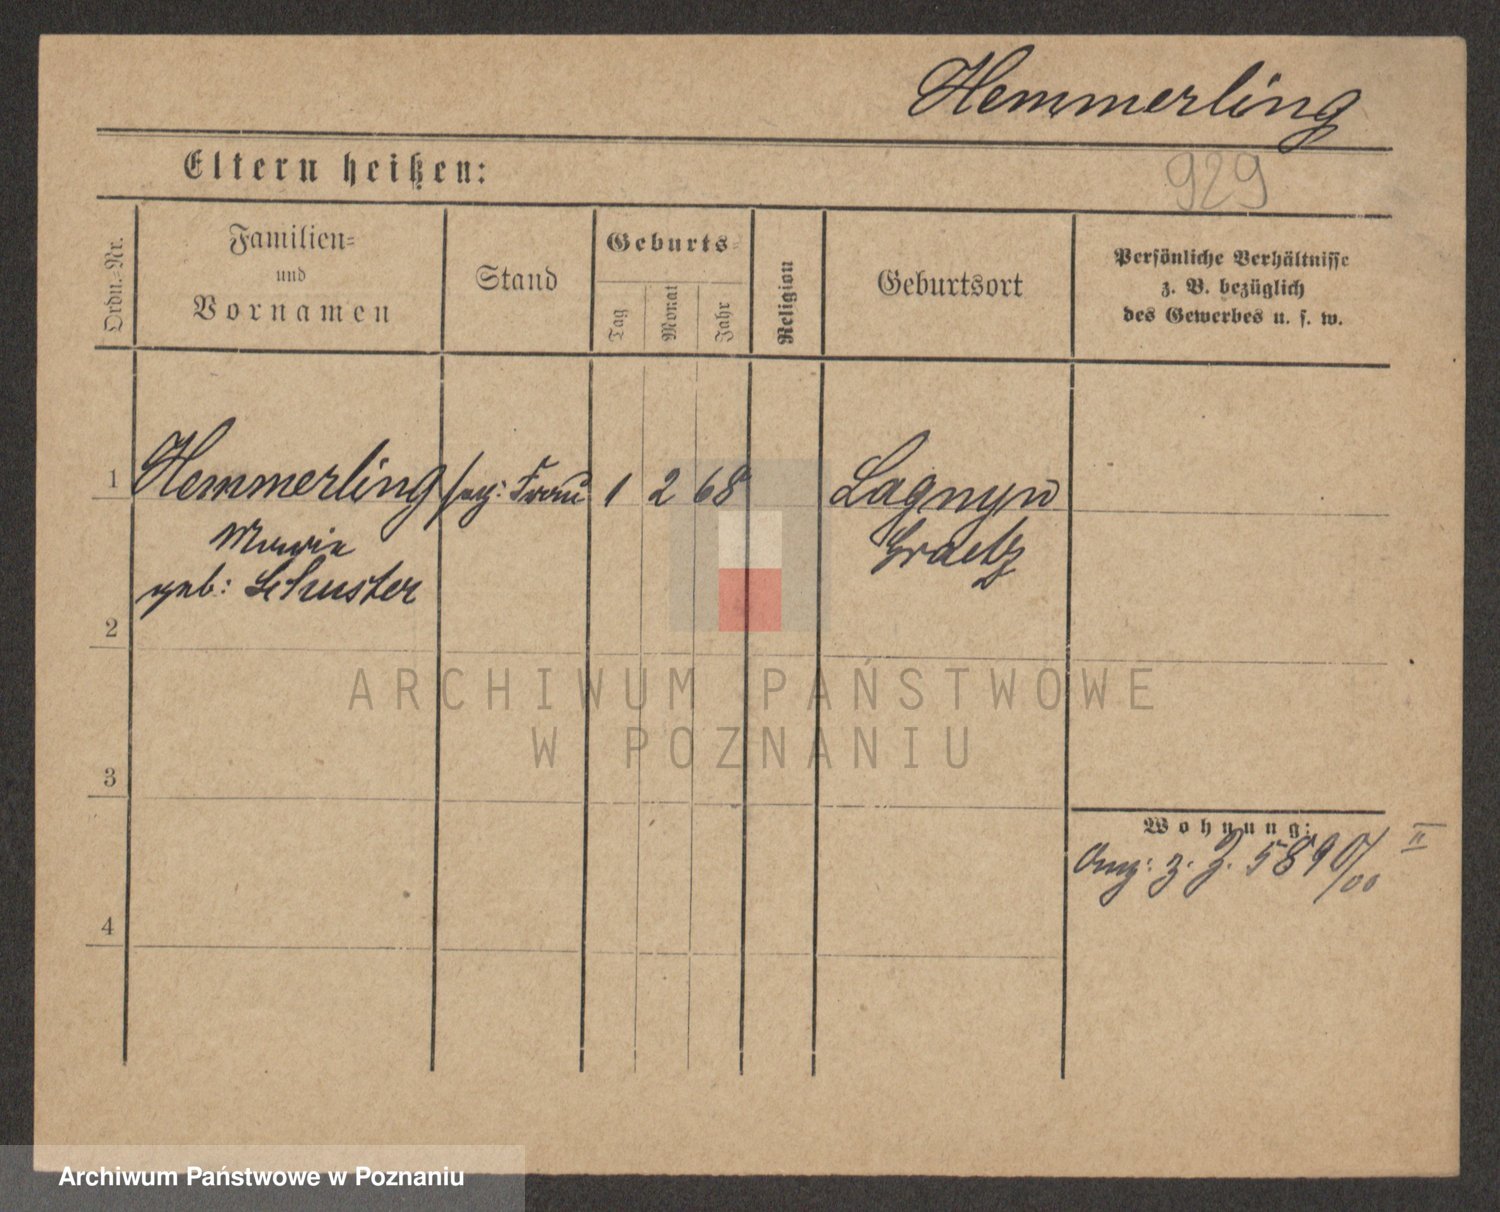 Hemmerling
Eltern heißen:
929
Ordn.=Nr.
Familien=
und
Vornamen
Stand
Geburts=
Tag
Monat
Jahr
Religion
Geburtsort
Persönliche Verhältnisse
z. B. bezüglich
des Gewerbes u. s. w.
1 Hemmerling Frau 1 2 68
Marie
geb: Schuster
Graetz
2
3
4
Wohnung:
z. 5890/00 II
ARCHIWUM PAŃSTWOWE
W POZNANIU
Archiwum Państwowe w Poznaniu